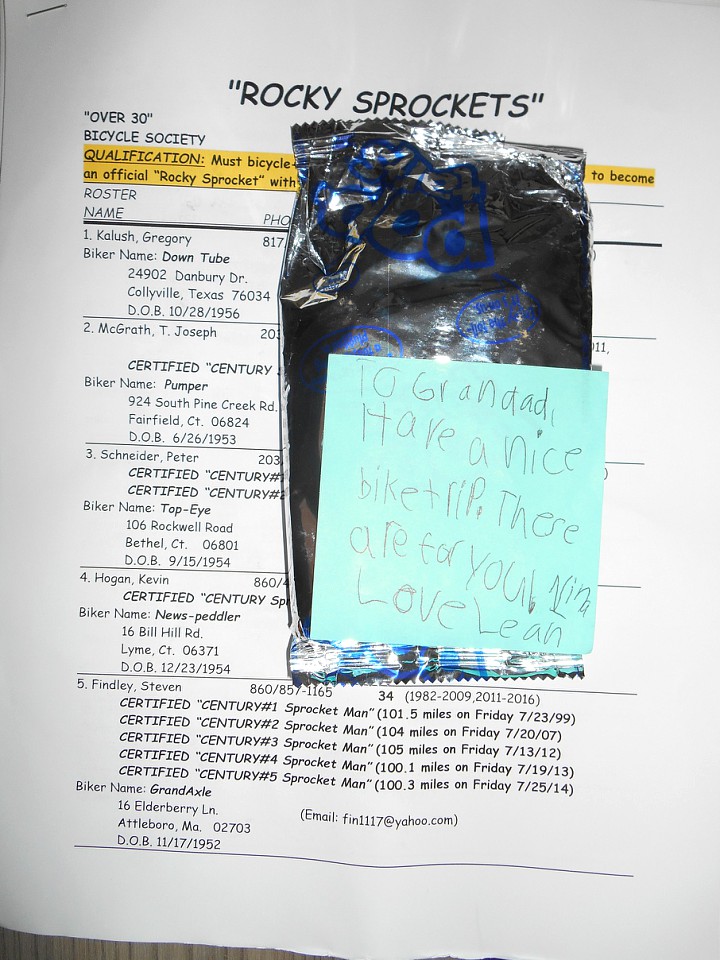 "ROCKY SPROCKETS"
"OVER 30"
BICYCLE SOCIETY
QUALIFICATION: Must bicycle- to become
an official "Rocky Sprocket" with
ROSTER
NAME PHO
1. Kalush, Gregory 817
Biker Name: Down Tube
24902 Danbury Dr.
Collyville, Texas 76034
D.O.B. 10/28/1956
2. McGrath, T. Joseph 203 011,
CERTIFIED "CENTURY
Biker Name: Pumper
924 South Pine Creek Rd.
Fairfield, Ct. 06824
D.O.B. 6/26/1953
3. Schneider, Peter 203
CERTIFIED "CENTURY#1
CERTIFIED "CENTURY#2
Biker Name: Top-Eye
106 Rockwell Road
Bethel, Ct. 06801
D.O.B. 9/15/1954
4. Hogan, Kevin 860/4
CERTIFIED "CENTURY Sp
Biker Name: News-peddler
16 Bill Hill Rd.
Lyme, Ct. 06371
D.O.B. 12/23/1954
5. Findley, Steven 860/857-1165 34 (1982-2009,2011-2016)
CERTIFIED "CENTURY#1 Sprocket Man" (101.5 miles on Friday 7/23/99)
CERTIFIED "CENTURY#2 Sprocket Man" (104 miles on Friday 7/20/07)
CERTIFIED "CENTURY#3 Sprocket Man" (105 miles on Friday 7/13/12)
CERTIFIED "CENTURY#4 Sprocket Man" (100.1 miles on Friday 7/19/13)
CERTIFIED "CENTURY#5 Sprocket Man" (100.3 miles on Friday 7/25/14)
Biker Name: GrandAxle
16 Elderberry Ln. (Email: fin1117@yahoo.com)
Attleboro, Ma. 02703
D.O.B. 11/17/1952
To Grandad,
Have a nice
biketrip. These
are for you!
Love Lean